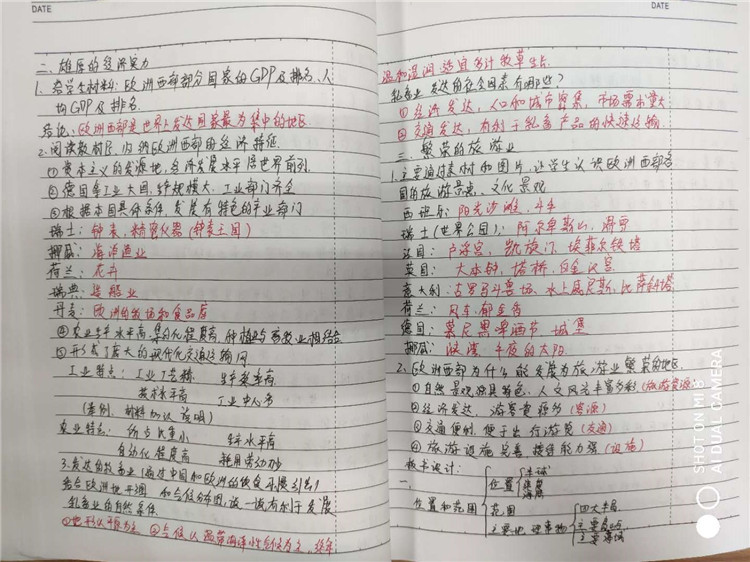 DATE
二、雄厚的经济实力
1.结合材料：欧洲西部部分国家的GDP及排名、人
均GDP及排名
结论：欧洲西部是世界发达国家最为集中的地区
2.阅读教材后，归纳欧洲西部的经济特征.
①资本主义的发源地，经济发展水平居世界前列.
②德国等工业大国，生产规模大，工业部门齐全
③根据本国具体条件，发展有特色的产业部门
瑞士：钟表、精密仪器(钟表王国)
挪威：海洋渔业
荷兰：花卉
瑞典：造船业
丹麦：欧洲的牧场和食品库
④农业生产水平高，集约化程度高，种植与畜牧业相结合
⑤形成了庞大的现代化交通运输网
工业特点：工业 生产效率高
技术水平高 工业中心多
(案例、材料加以说明)
农业特点：所占比重小 生产水平高
自动化程度高 耗用劳动少
3.发达的畜牧业(通过中国和欧洲的饮食习惯引出)
结合欧洲地形图和气候分布图，谈一谈有利于发展
乳畜业的自然条件
①地形以平原为主 ②气候以温带海洋性气候为主，终年
DATE
温和湿润，适宜多汁牧草生长.
乳畜业发达的社会因素有哪些？
①经济发达，人口和城市密集，市场需求量大
②交通发达，有利于乳畜产品的快速运输
三、繁荣的旅游业
1.主要通过教材和图片，让学生认识欧洲西部各
国的旅游景点、文化景观
西班牙：阳光沙滩、斗牛
瑞士(世界公园)：阿尔卑斯山、滑雪
法国：卢浮宫、凯旋门、埃菲尔铁塔
英国：大本钟、塔桥、白金汉宫
意大利：古罗马斗兽场、水上威尼斯、比萨斜塔
荷兰：风车、郁金香
德国：慕尼黑啤酒节、城堡
挪威：峡湾、午夜的太阳.
2.欧洲西部为什么能发展为旅游业繁荣的地区
①自然景观独具特色，人文风光丰富多彩(旅游资源)
②经济发达，游客资源多(客源)
③交通便利，便于出行游览(交通)
④旅游设施完善，接待能力强(设施)
板书设计：
一、
位置和范围
位置
半球
海陆
范围
主要地理事物
四大半岛
主要岛屿
主要海域
SHOT ON MI 8
AI DUAL CAMERA